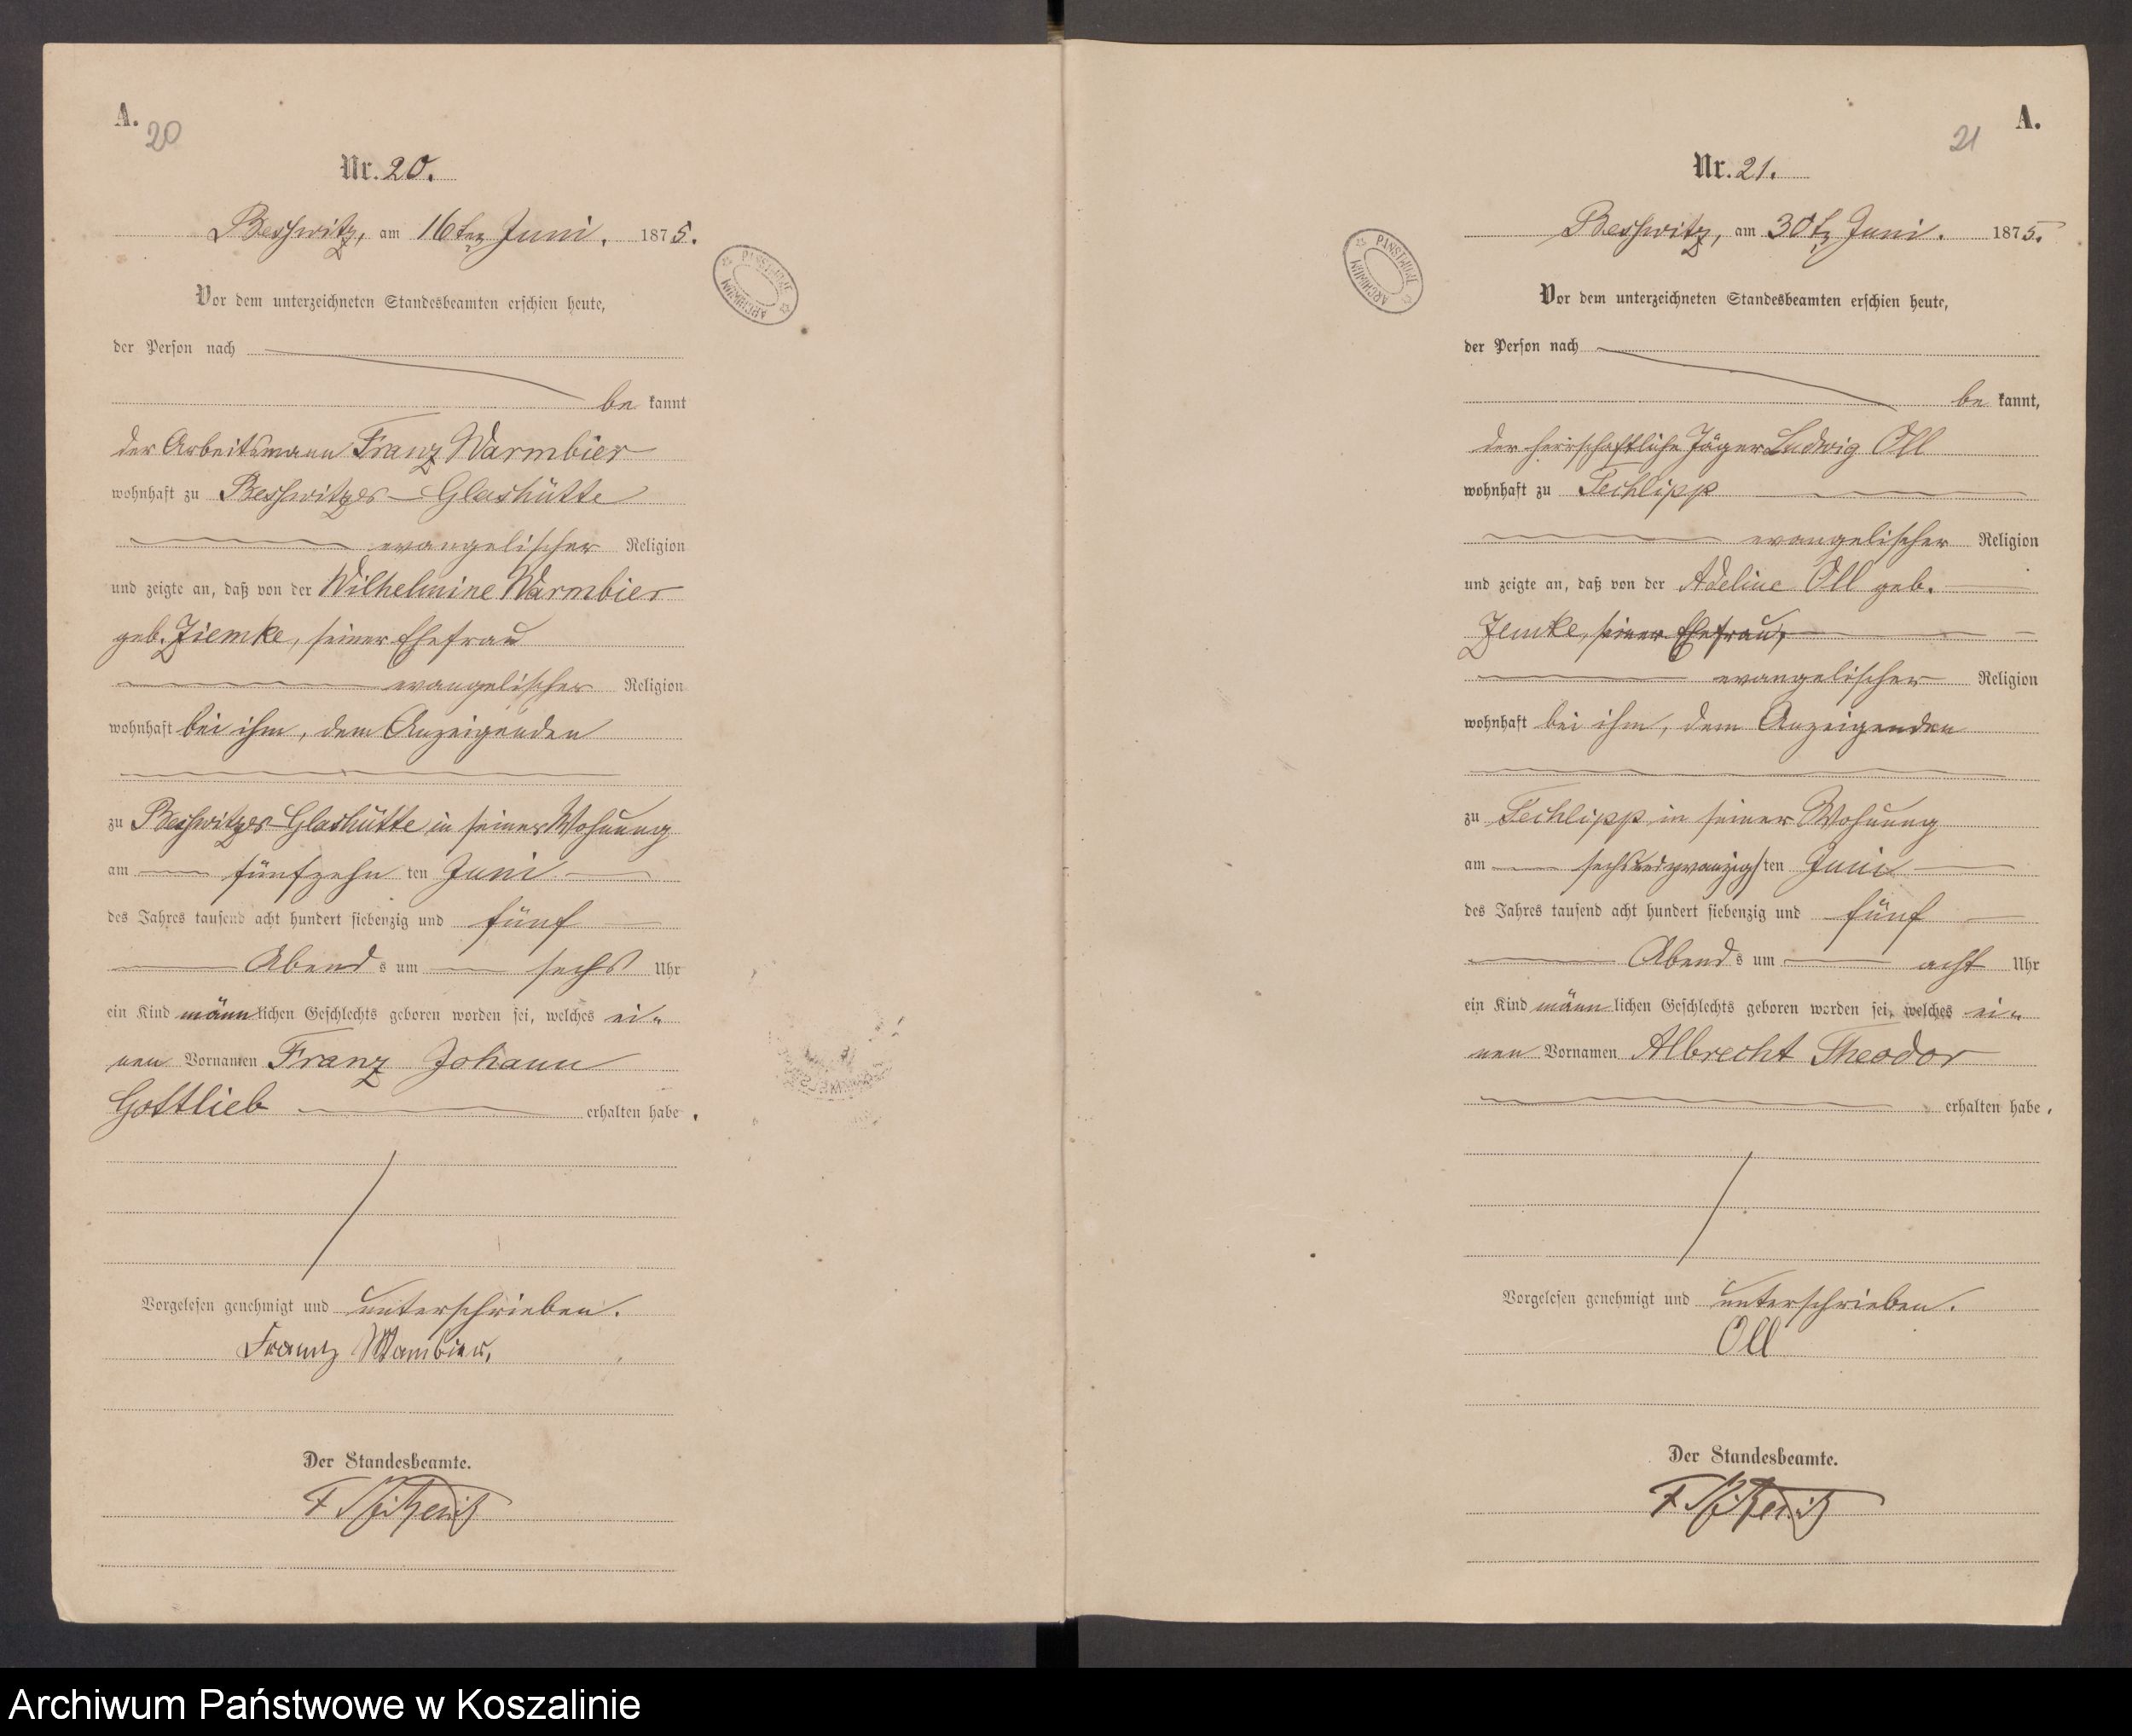 A.
20
Nr. 20.
Besswitz, am 16ten Juni. 1875.
Vor dem unterzeichneten Standesbeamten erschien heute,
der Person nach
be kannt
der Arbeitsmann Franz Warmbier
wohnhaft zu Besswitzer-Glashütte
evangelischer Religion
und zeigte an, daß von der Wilhelmine Warmbier
geb. Ziemke, seiner Ehefrau
evangelischer Religion
wohnhaft bei ihm, dem Anzeigenden
zu Besswitzer-Glashütte in seiner Wohnung
am fünfzehn ten Juni
des Jahres tausend acht hundert siebenzig und fünf
Abend s um sechs Uhr
ein Kind männ lichen Geschlechts geboren worden sei, welches ei-
nen Vornamen Franz Johann
Gottlieb erhalten habe.
Vorgelesen genehmigt und unterschrieben.
Franz Wambier,
Der Standesbeamte.
ARCHIWUM PAŃSTWOWE
A.
21
Nr. 21.
Besswitz, am 30t Juni. 1875.
Vor dem unterzeichneten Standesbeamten erschien heute,
der Person nach
be kannt,
der herrschaftliche Jäger Ludwig Oll
wohnhaft zu Techlipp
evangelischer Religion
und zeigte an, daß von der Adeline Oll geb.
Zemke, seiner Ehefrau,
evangelischer Religion
wohnhaft bei ihm, dem Anzeigenden
zu Techlipp in seiner Wohnung
am sechsundzwanzigs ten Juni
des Jahres tausend acht hundert siebenzig und fünf
Abend s um acht Uhr
ein Kind männ lichen Geschlechts geboren worden sei, welches ei-
nen Vornamen Albrecht Theodor
erhalten habe.
Vorgelesen genehmigt und unterschrieben.
Oll
Der Standesbeamte.
ARCHIWUM PAŃSTWOWE
Archiwum Państwowe w Koszalinie